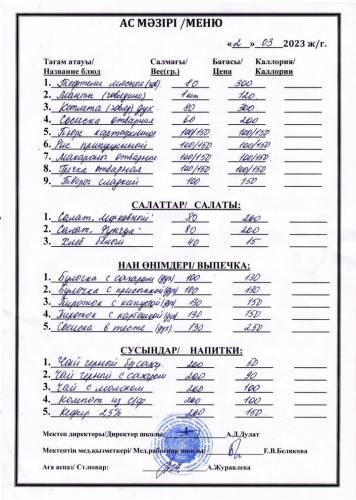 АС МӘЗІРІ /МЕНЮ
«2» 03 2023 ж/г.
Тағам атауы/ Салмағы/ Бағасы/ Каллория/
Название блюд Вес(гр.) Цена Каллории
1. Тефтели мясной (гов) 80 300
2. Манты (говядина) 1шт 120
3. Котлета (говяд) дух. 80 300
4. Сосиска отварная 60 200
5. Пюре картофельное 100/150 100/150
6. Рис припущенный 100/150 100/150
7. Макароны отварные 100/150 100/150
8. Гречка отварная 100/150 100/150
9. Творог сладкий 100 150
САЛАТТАР/ САЛАТЫ:
1. Салат. Морковный 80 200
2. Салат. Фунчуза 80 200
3. Хлеб белый 40 15
НАН ӨНІМДЕРІ/ ВЫПЕЧКА:
1. Булочка с сахаром (дух) 100 130
2. Булочка с присыпкой (дух) 100 130
3. Пирожок с капустой (дух) 130 150
4. Пирожок с картошкой (дух) 130 150
5. Сосиска в тесте (дух) 130 250
СУСЫНДАР/ НАПИТКИ:
1. Чай черный без сахар. 200 50
2. Чай черный с сахаром 200 90
3. Чай с молоком 200 100
4. Компот из с/ф 200 100
5. Кефир 2,5% 200 150
Мектеп директоры/Директор школы: А.Д.Дулат
Мектептің мед.қызметкері/ Мед.работник школы: Е.В.Белякова
Аға аспаз/ Ст.повар: А.Журавлева